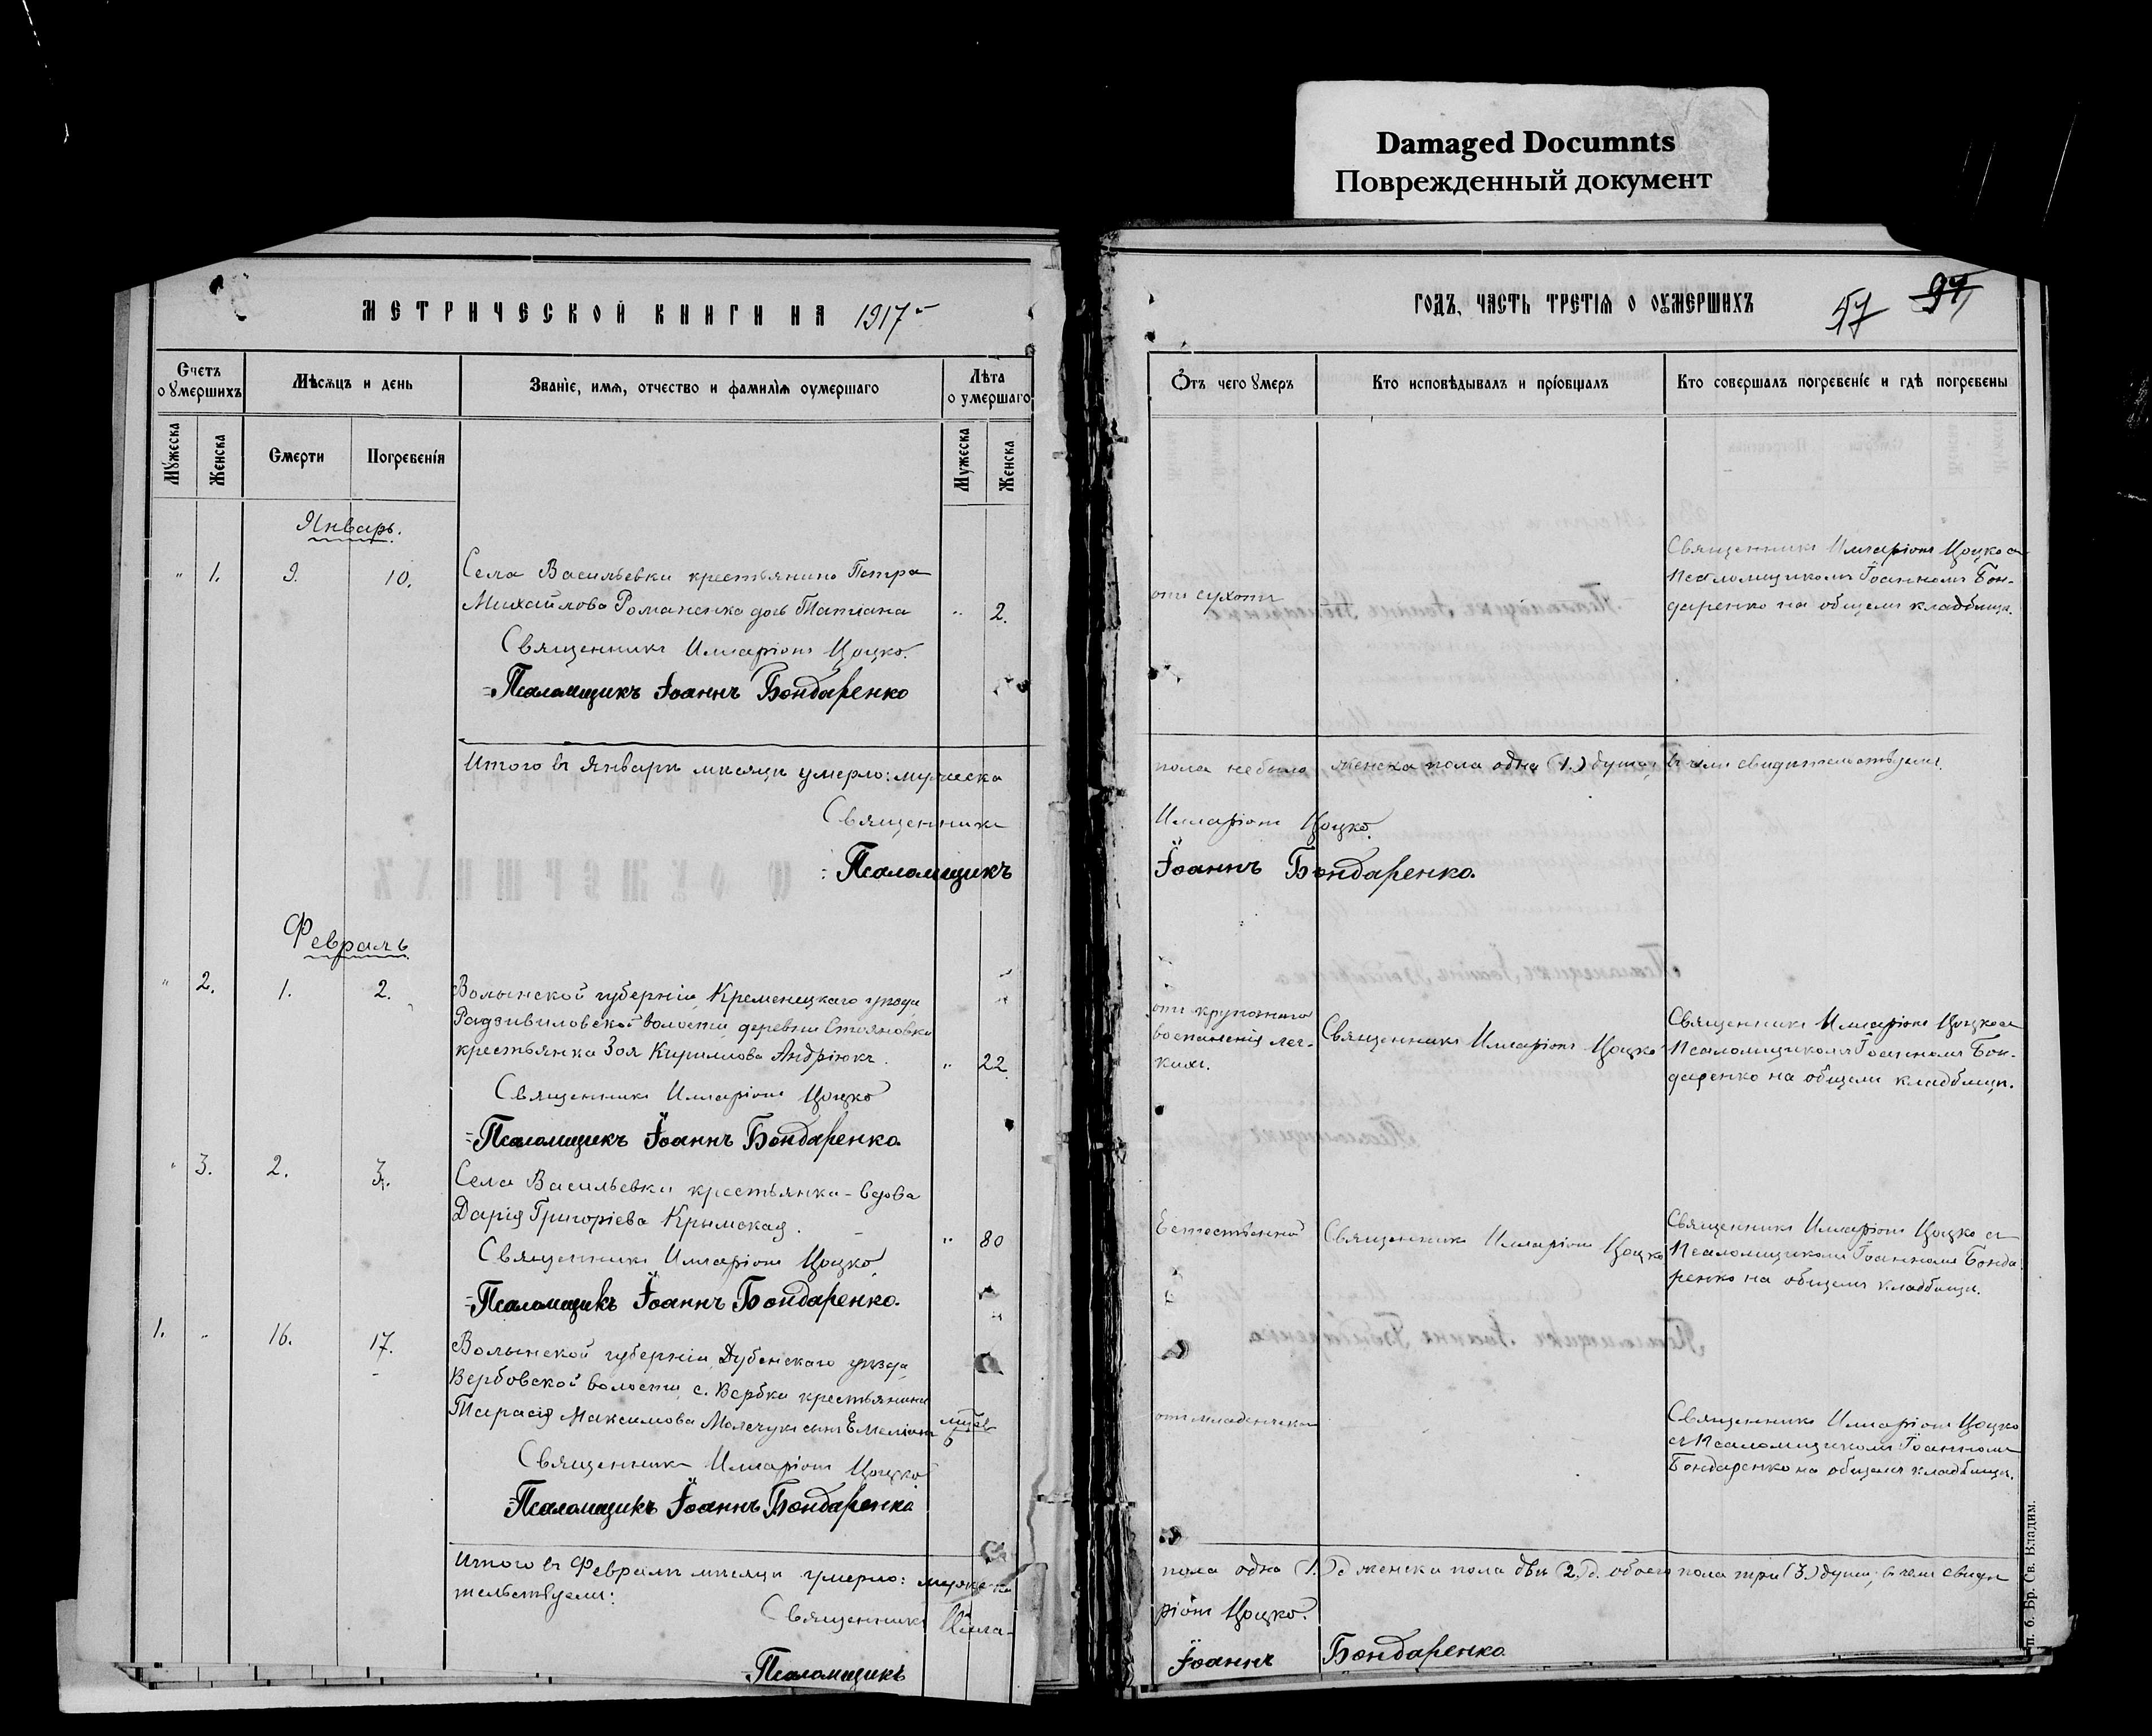 Damaged Documnts
Поврежденный документ
МЕТРИЧЕСКОЙ КНИГИ НА 1917
ГОДЪ, ЧАСТЬ ТРЕТІЯ О ОУМЕРШИХЪ 57 97
Счетъ оумершихъ
Мѣсяцъ и день
Званіе, имя, отчество и фамилія оумершаго
Лѣта оумершаго
Отъ чего умеръ
Кто исповѣдывалъ и пріобщалъ
Кто совершалъ погребеніе и гдѣ погребены
Мужеска
Женска
Смерти
Погребенія
Мужеска
Женска
Январь.
" 1. 9. 10.
Села Васильевки крестьянина Петра
Михайлова Романенко дочь Татіана " 2.
Священникъ Илларіонъ Цоцко.
Псаломщикъ Іоаннъ Бондаренко
отъ сухотъ
Священникъ Илларіонъ Цоцко съ
Псаломщикомъ Іоанномъ Бон-
даренко на общемъ кладбищѣ.
Итого въ Январѣ мѣсяцѣ умерло: мужеска
пола не было женска пола одна (1.) душа, въ чемъ свидѣтельствуемъ.
Священникъ
Илларіонъ Цоцко.
Псаломщикъ
Іоаннъ Бондаренко.
Февраль
" 2. 1. 2.
Волынской губерніи, Кременецкаго уѣзда,
Радзивиловской волости, деревни Стояновки
крестьянка Зоя Кириллова Андріюкъ. " 22.
Священникъ Илларіонъ Цоцко
Псаломщикъ Іоаннъ Бондаренко
отъ крупознаго
воспаленія лег-
кихъ.
Священникъ Илларіонъ Цоцко
Священникъ Илларіонъ Цоцко съ
Псаломщикомъ Іоанномъ Бон-
даренко на общемъ кладбищѣ.
" 3. 2. 3.
Села Васильевки крестьянка-вдова
Дарія Григоріева Крымская. " 80
Священникъ Илларіонъ Цоцко
Псаломщикъ Іоаннъ Бондаренко.
Естественной
Священникъ Илларіонъ Цоцко
Священникъ Илларіонъ Цоцко съ
Псаломщикомъ Іоанномъ Бонда
ренко на общемъ кладбищѣ.
1. " 16. 17.
Волынской губерніи, Дубенскаго уѣзда,
Вербовской волости, с. Вербки крестьянина
Тарасія Максимова сынъ Емеліанъ
Священникъ Илларіонъ Цоцко
Псаломщикъ Іоаннъ Бондаренко
отъ младенческой
Священникъ Илларіонъ Цоцко
съ Псаломщикомъ Іоанномъ
Бондаренко на общемъ кладбищѣ.
Итого въ Февралѣ мѣсяцѣ умерло: мужеска
пола одна (1.) д женска пола двѣ (2.) д. обоего пола три (3.) души, въ чемъ свидѣ
тельствуемъ:
Священникъ Илла-
ріонъ Цоцко.
Псаломщикъ
Іоаннъ Бондаренко
п. б. Бр. Св. Владим.